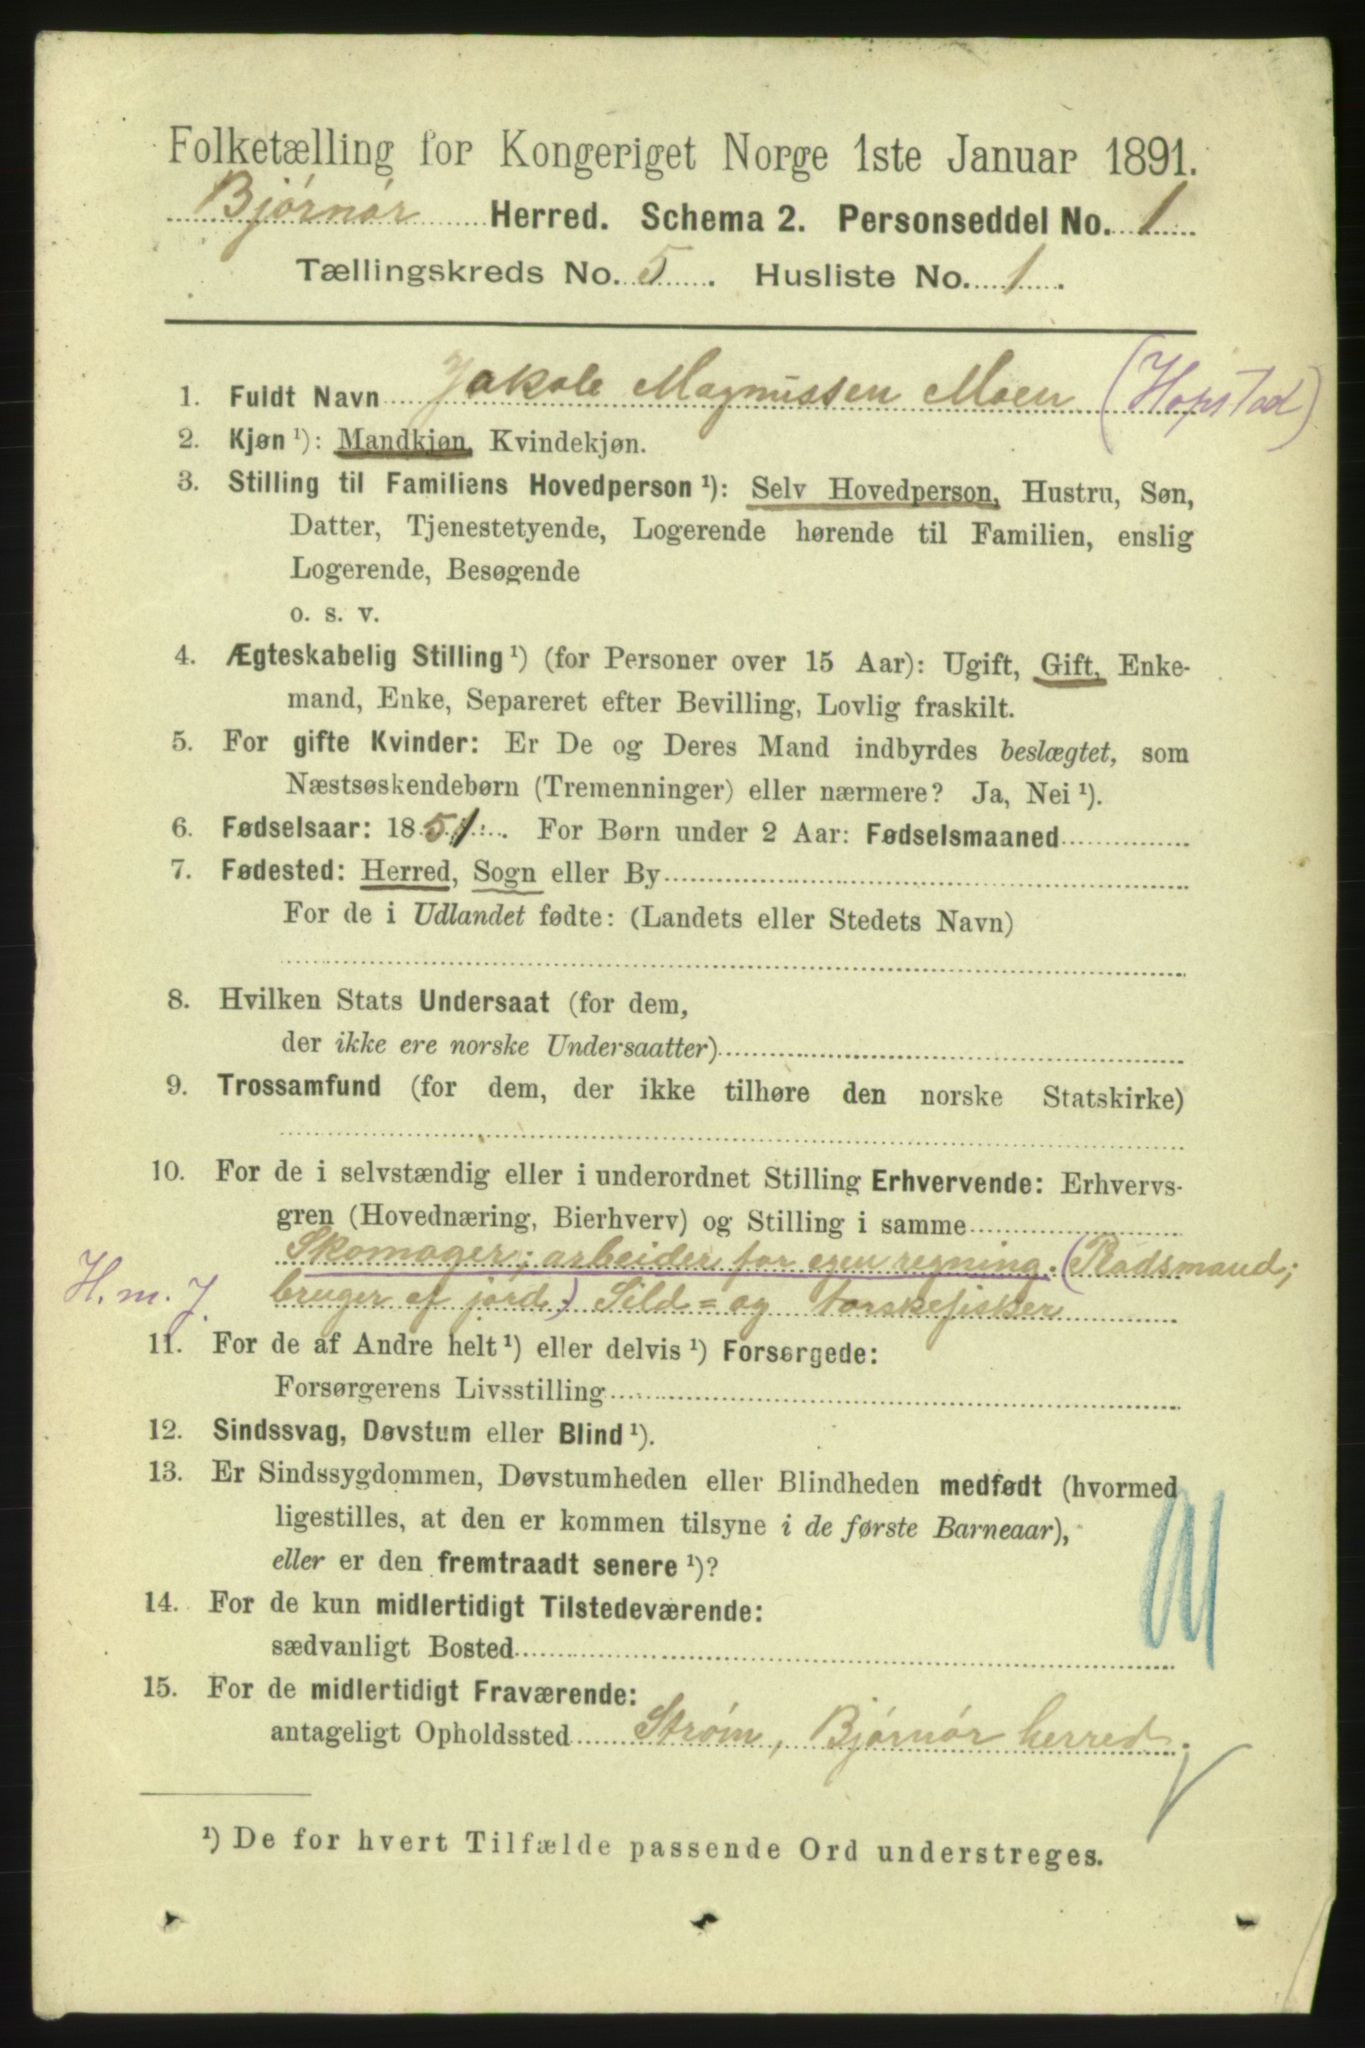 Folketælling for Kongeriget Norge 1ste Januar 1891.
Bjørnør Herred. Schema 2. Personseddel No. 1
Tællingskreds No. 5. Husliste No. 1.
1. Fuldt Navn Jakob Magnussen Moen (Hopstad)
2. Kjøn ¹): Mandkjøn, Kvindekjøn.
3. Stilling til Familiens Hovedperson ¹): Selv Hovedperson, Hustru, Søn,
Datter, Tjenestetyende, Logerende hørende til Familien, enslig
Logerende, Besøgende
o. s. v.
4. Ægteskabelig Stilling ¹) (for Personer over 15 Aar): Ugift, Gift, Enke-
mand, Enke, Separeret efter Bevilling, Lovlig fraskilt.
5. For gifte Kvinder: Er De og Deres Mand indbyrdes beslægtet, som
Næstsøskendebørn (Tremenninger) eller nærmere? Ja, Nei ¹).
6. Fødselsaar: 1851. For Børn under 2 Aar: Fødselsmaaned
7. Fødested: Herred, Sogn eller By
For de i Udlandet fødte: (Landets eller Stedets Navn)
8. Hvilken Stats Undersaat (for dem,
der ikke ere norske Undersaatter)
9. Trossamfund (for dem, der ikke tilhøre den norske Statskirke)
10. For de i selvstændig eller i underordnet Stilling Erhvervende: Erhvervs-
gren (Hovednæring, Bierhverv) og Stilling i samme
Skomager; arbeider for egen regning. (Pladsmand;
H. m. J. bruger af jord.) Sild= og torskefisker
11. For de af Andre helt ¹) eller delvis ¹) Forsørgede:
Forsørgerens Livsstilling
12. Sindssvag, Døvstum eller Blind ¹).
13. Er Sindssygdommen, Døvstumheden eller Blindheden medfødt (hvormed
ligestilles, at den er kommen tilsyne i de første Barneaar),
eller er den fremtraadt senere ¹)?
14. For de kun midlertidigt Tilstedeværende:
sædvanligt Bosted
15. For de midlertidigt Fraværende:
antageligt Opholdssted Strøm, Bjørnør herred.
¹) De for hvert Tilfælde passende Ord understreges.